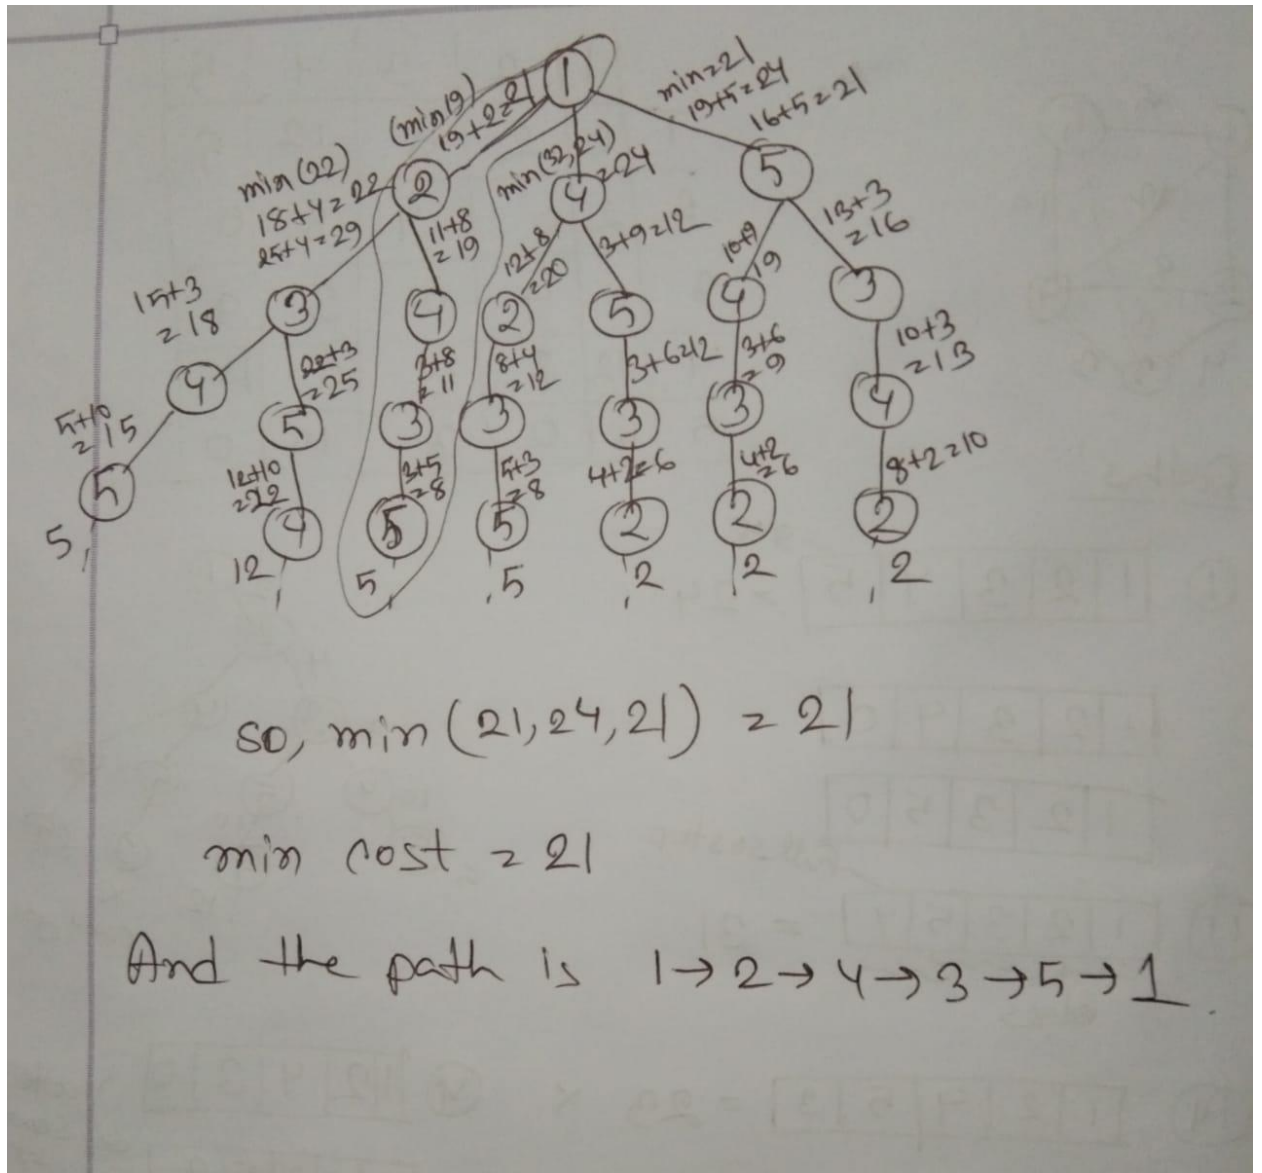 1
(min19)
19+2=21
min=21
19+5=24
16+5=21
min(22)
18+4=22
25+4=29
2
min(32,24)
=24
4
5
11+8
=19
12+8
=20
3+9=12
10+9
19
13+3
=16
15+3
=18
3
4
2
5
4
3
22+3
=25
3+8
=11
8+4
=12
3+6=12
3+6
=9
10+3
=13
4
5
3
3
3
3
4
5+10
=15
12+10
=22
3+5
=8
5+3
=8
4+2=6
4+2
=6
8+2=10
5
4
5
5
2
2
2
5,
12,
5,
,5
,2
2
, 2
so, min (21,24,21) = 21
min cost = 21
And the path is 1→2→4→3→5→1.